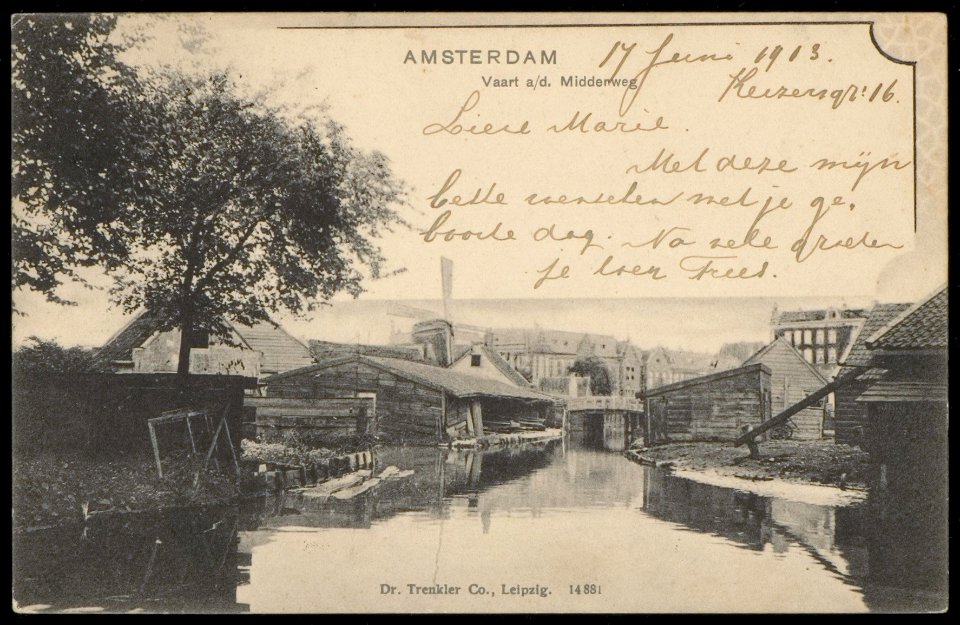 AMSTERDAM
Vaart a/d. Middenweg
17 Juni 1913.
Keizersgr: 16.
Lieve Marie.
Met deze mijn
beste wenschen met je ge,
boorte dag. Na vele groeten
je
Dr. Trenkler Co., Leipzig. 14881